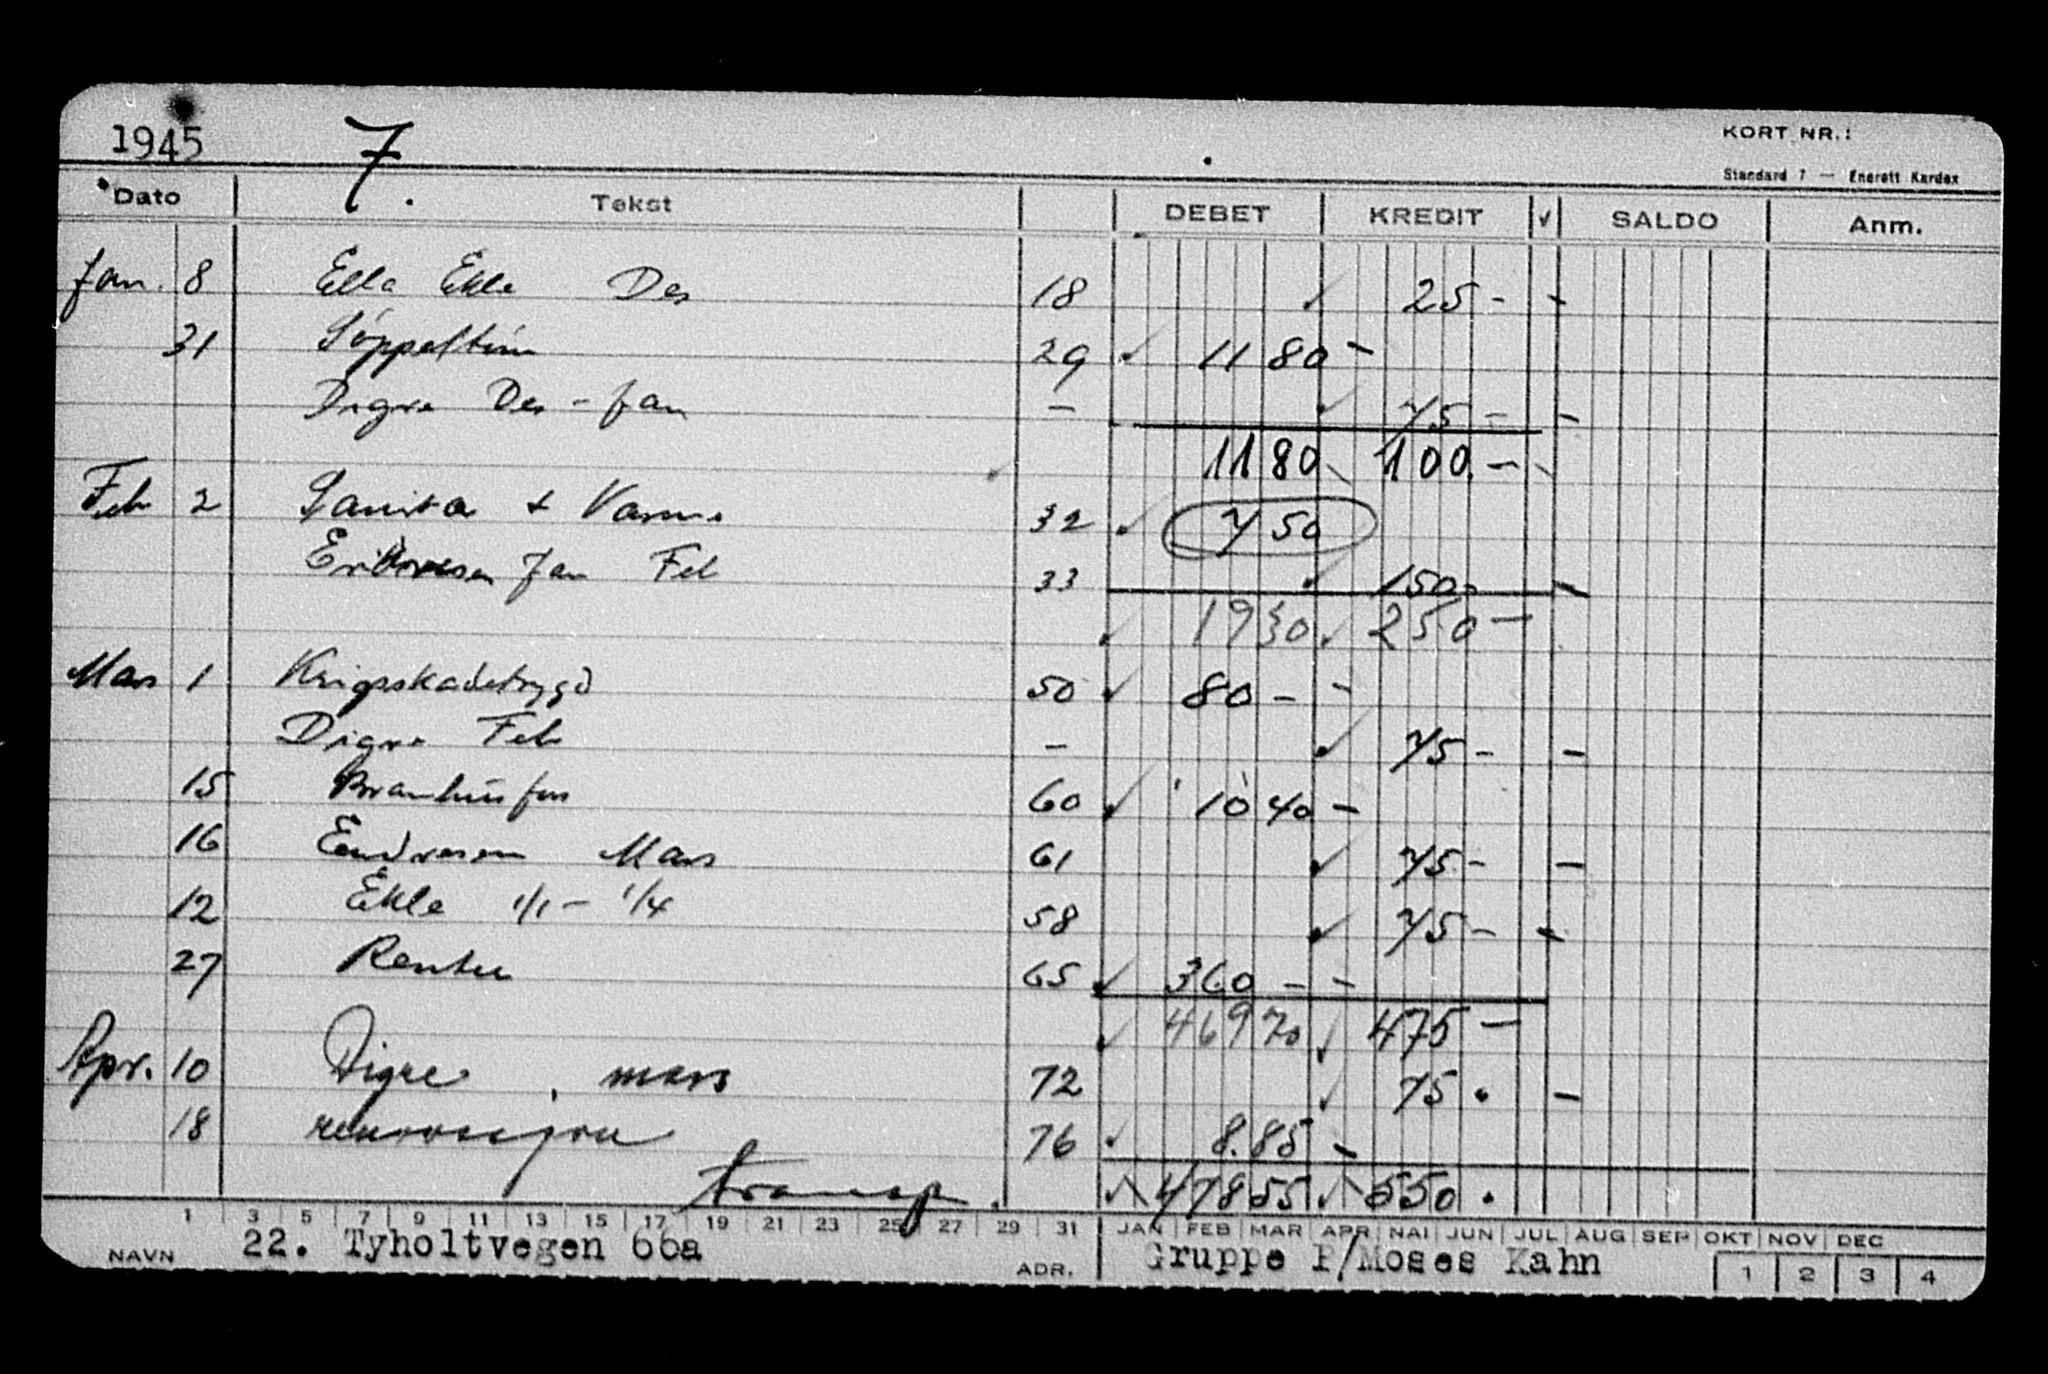 1945 7. KORT NR.:
Standard 7 — Enerett Kardex
Dato Tekst DEBET KREDIT √ SALDO Anm.
Jan. 8 Ella Ekle Des 18 25 -
31 Søppeltøm 29 11 80
Digre Des - Jan — 75 -
11 80 100 -
Feb 2 Sanitær + Varme 32 7 50
Endresen Jan Feb 33 150 -
19 30 250 -
Mars 1 Krigsskadetrygd 50 80 -
Digre Feb — 75 -
15 60 10 40
16 Endresen Mars 61 75 -
12 Ekle 1/1 - 1/4 58 75 -
27 Renter 65 360 -
469 70 475 -
Apr. 10 Digre, mars 72 75 .
18 76 8.85
transp. 478 55 550 .
1 3 5 7 9 11 13 15 17 19 21 23 25 27 29 31 JAN FEB MAR APR MAI JUN JUL AUG SEP OKT NOV DEC
NAVN 22. Tyholtvegen 66a ADR. Gruppe P/Moses Kahn 1 2 3 4